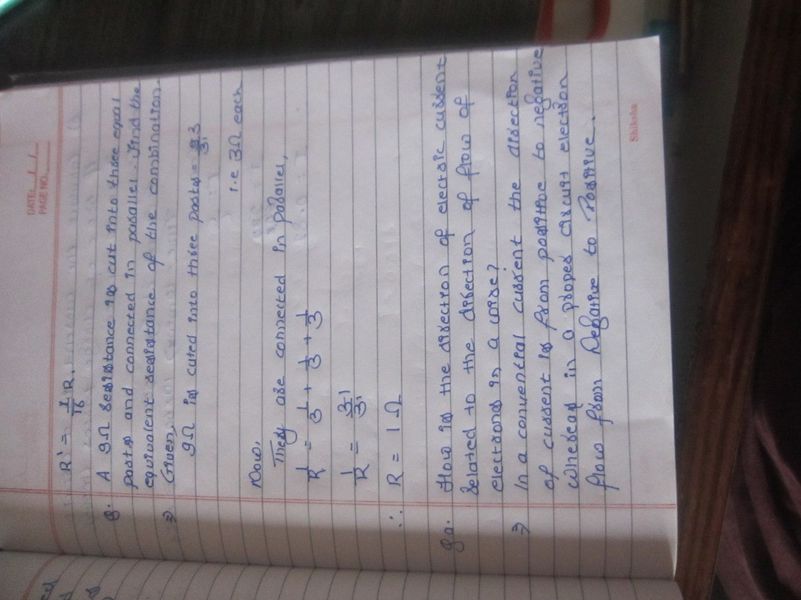 DATE: / /
PAGE NO.:
R' = 1/16 R.
Q. A 9Ω resistance is cut into three equal
parts and connected in parallel. Find the
equivalent resistance of the combination.
⇒ Given,
9Ω is cuted into three parts = 9/3 3
i.e 3Ω each
Now,
They are connected in parallel,
1/R = 1/3 + 1/3 + 1/3
1/R = 3/3 1
∴ R = 1 Ω
How is the direction of electric current
related to the direction of flow of
electrons in a wire?
⇒ In a conventral current the direction
of current is from positive to negative
whereas in a proper circuit electron
flow from Negative to Positive.
Shiksha